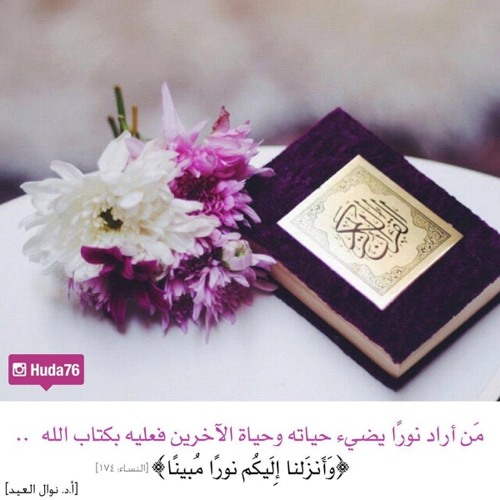 القرآن الكريم
Huda76
مَن أراد نورًا يضيء حياته وحياة الآخرين فعليه بكتاب الله ..
﴿وَأَنزَلنا إِلَيكُم نورًا مُبينًا﴾ [النساء: ١٧٤]
[أ.د. نوال العيد]